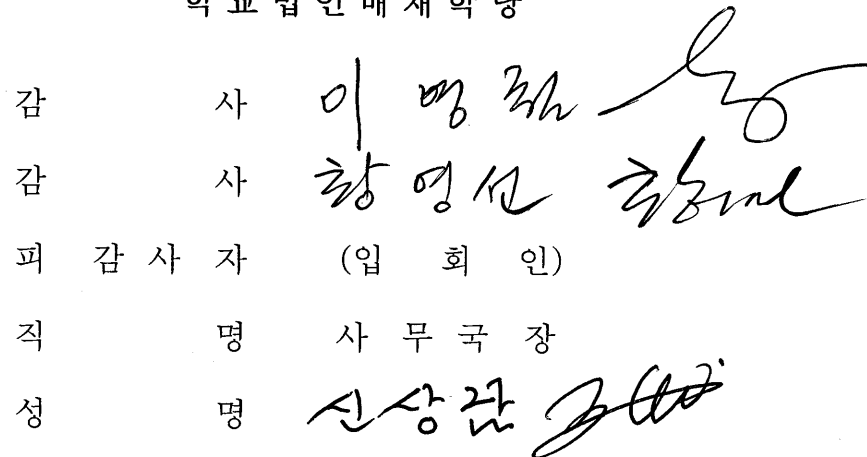 학교법인배재학당
감 사 이병
감 사 황영선
피 감 사 자 (입 회 인)
직 명 사 무 국 장
성 명 신상